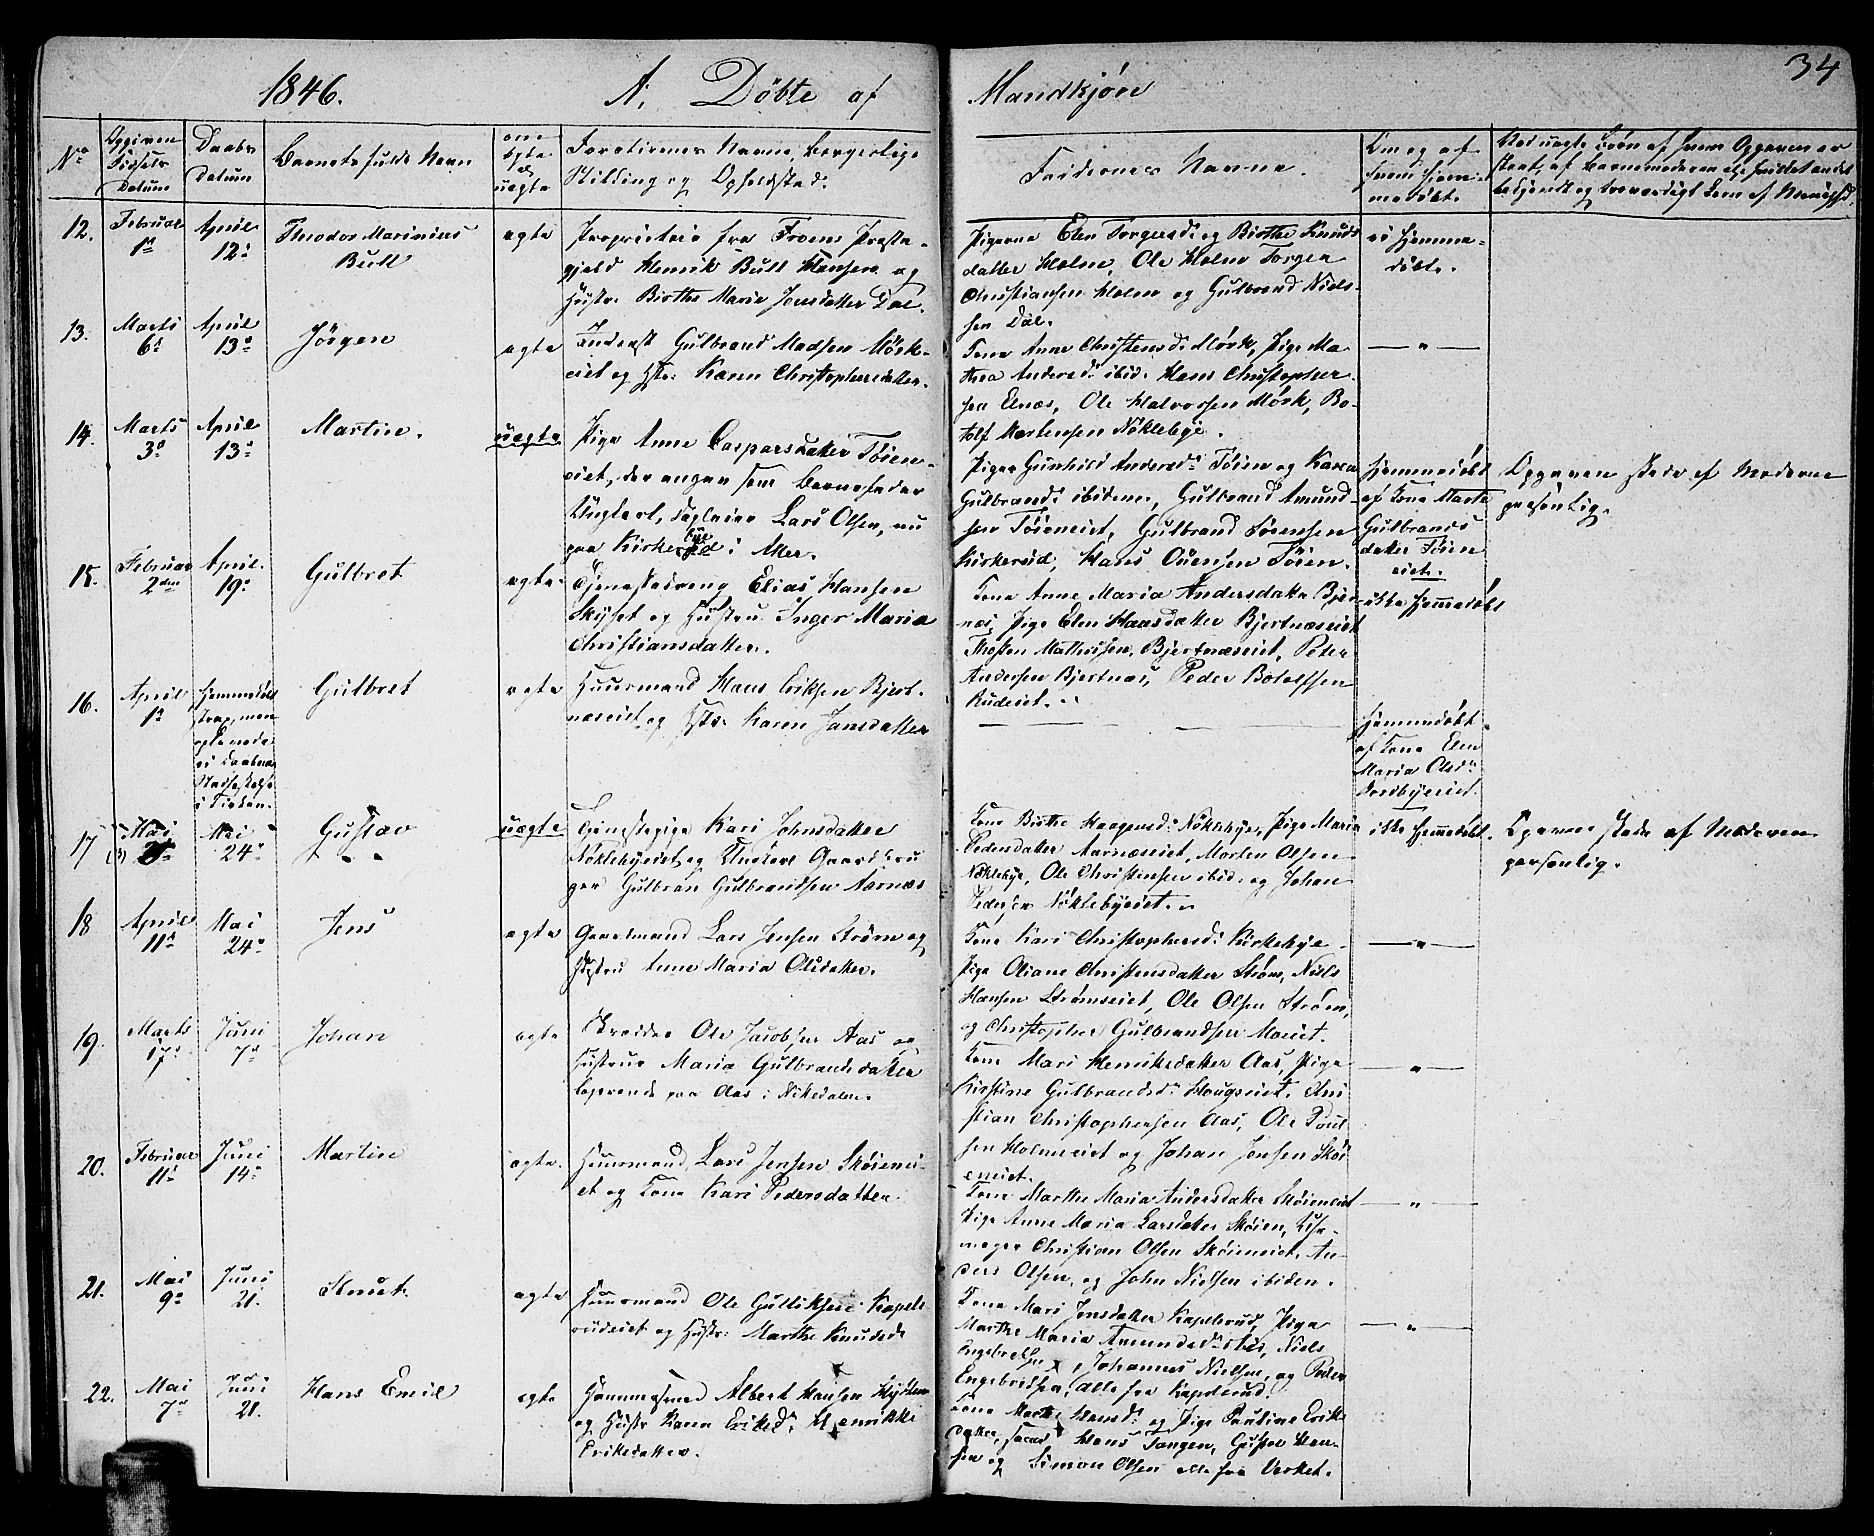 34
1846. A, Döbte af Mandkjön
No
Opgiven Födsels Datum
Daabs Datum
Barnets fulde Navn
om ægte eg uægte
Forældrenes Navne, borgerlige
Stilling og Opholdsted.
Faddernes Navne.
Om og af hvem hjemmedöbt.
12.
Februar 1ste
April 12:
Theodor Marinius
Bull
ægte
Proprietair fra Froens Præste-
gjeld Henrik Bull Hansen og
Hustr. Birthe Marie Jensdatter Dal.
Pigerne Elen Torgersd: og Birthe Knuds
datter Holm, Ole Holm Torger
Christiansen Holm og Gulbrand Niels-
sen Dal.
ei hjemme-
döbt.
13.
Marts 6:
April 13:
Jörgen
ægte
Inderst Gulbrand Madsen Mörk-
eiet og Hst: Karen Christophersdatter.
Kone Anne Christensd: Mörk, Pige Ma
thea Andersd: ibid. Hans Christopher
sen Elnæs, Ole Halvorsen Mörk, Bo-
tolf Mortensen Nöklebye.
— " —
14.
Marts 3:
April 13:
Martin.
uægte
Pige Anne Caspersdatter Töien-
eiet, der angav som Barnefader
Ungkarl, Lars Olsen, nu
paa Kirkerud i Aker.
Piger Gunhild Andersd: Töien og Karen
Gulbrandsd: ibidem, Gulbrand Amund
sen Töieneiet, Gulbrand Sörensen
Kirkerud, Hans Ouensen Töien.
Hjemmedöbt
af Kone Marte
Gulbrands
datter Töien
eiet.
Opgaven skede af Moderen
personlig.
15.
Februar 2den
April 19:
Gulbret
ægte
Tjenestedreng Elias Hansen
Skyset og Hustru Inger Maria
Christiansdatter.
Kone Anne Maria Andersdatter Bjert-
næs, Pige Elen Hansdatter Bjertnæseiet
Thosten Mathisen, Bjertnæseiet, Peter
Andersen Bjertnæs, Peder Botolfsen
Rudeiet.
ikke hjemmedöbt
16.
April 1:
Hjemmedöbt
Gulbret
ægte
Huusmand Hans Eriksen Bjert-
næseiet og Hst: Karen Jansdatter
— —
Hjemmedöbt
af Kone Elen
Maria Olsd:
Nordbyeiet.
17
Mai
Mai 24:
Gustav
uægte
Tjenestepige Kari Johnsdatter
Nöklebyeiet og Unskarl Gaardbru
ger Gulbran Gulbrandsen Aarnæs
Kone Birthe Haagensd: Nöklebye, Pige Maria
Pedersdatter Aarnæseiet, Morten Olsen
Nöklebye, Ole Christensen ibid. og Johan
Pedersen Nöklebyeiet.
ikke hjemmedöbt.
Opgaven skede af Moderen
personlig.
18
April 11:
Mai 24:
Jens
ægte
Gaardmand Lars Jensen Ström og
Hustru Anne Maria Olsdatter.
Kone Kari Christophersd: Kirkebye
Pige Oliane Christensdatter Ström, Niels
Hansen Strömseiet, Ole Olsen Ström,
og Christopher Gulbrandsen Moeiet.
— " —
19.
Marts 17:
Juni 7:
Johan
ægte
Skrædder Ole Jacobsen Aas og
Hustrue Maria Gulbrandsdatter
boperende paa Aas i Nikedalen.
Kone Mari Henriksdatter Aas, Pige
Kirstine Gulbrandsd: Haugseiet, Chri
stian Christophersen Aas, Ole Poul
sen Holmeiet og Johan Jensen Sköi
eneiet.
— " —
20.
Februar 11:
Juni 14:
Martin
ægte.
Huusmand Lars Jensen Sköienei-
et og Kone Kari Pedersdatter
Kone Marthe Maria Andersdatter Sköieneiet
Pige Anne Maria Larsdatter Sköien,
mager Christian Olsen Sköieneiet, An-
ders Olsen, og John Nielsen ibiden.
— " —
21.
Mai 9:
Juni 21.
Knut.
ægte
Huusmand Ole Gulliksen Kapels
rudeiet og Hustr: Marthe Knudsd:
Kone Mari Jensdatter Kapelsrud, Pige
Marthe Maria Amundsd: , Niels
Engebretsen, Johannes Nielsen, og Peder
Engebridsen, alle fra Kapelsrud.
— " —
22.
Mai 7:
Juni 21.
Hans Emil
ægte
Hammersmed Albert Hansen
og Hustr Karen Eriksd: Henrikke
Eriksdatter.
Kone Marthe Hansd: og Pige Pauline Eriks
datter, Hans Tangen, Gustav Han-
sen og Simon Olsen alle fra Værket.